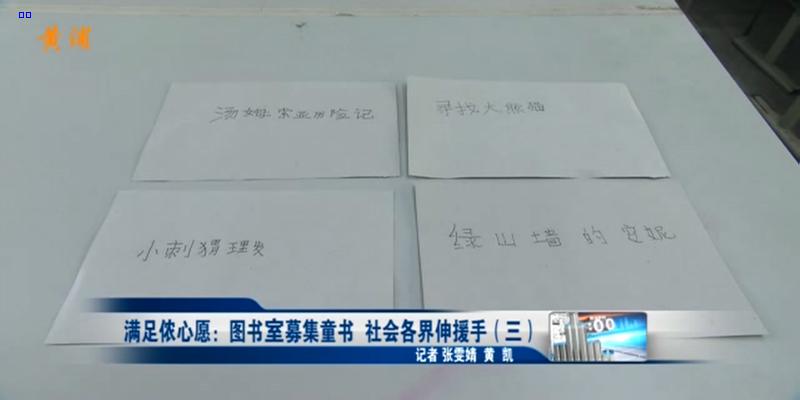 黄浦
汤姆索亚历险记
寻找大熊猫
小刺猬理发
绿山墙的安妮
满足侬心愿：图书室募集童书 社会各界伸援手（三）
:00
记者 张雯婧 黄 凯